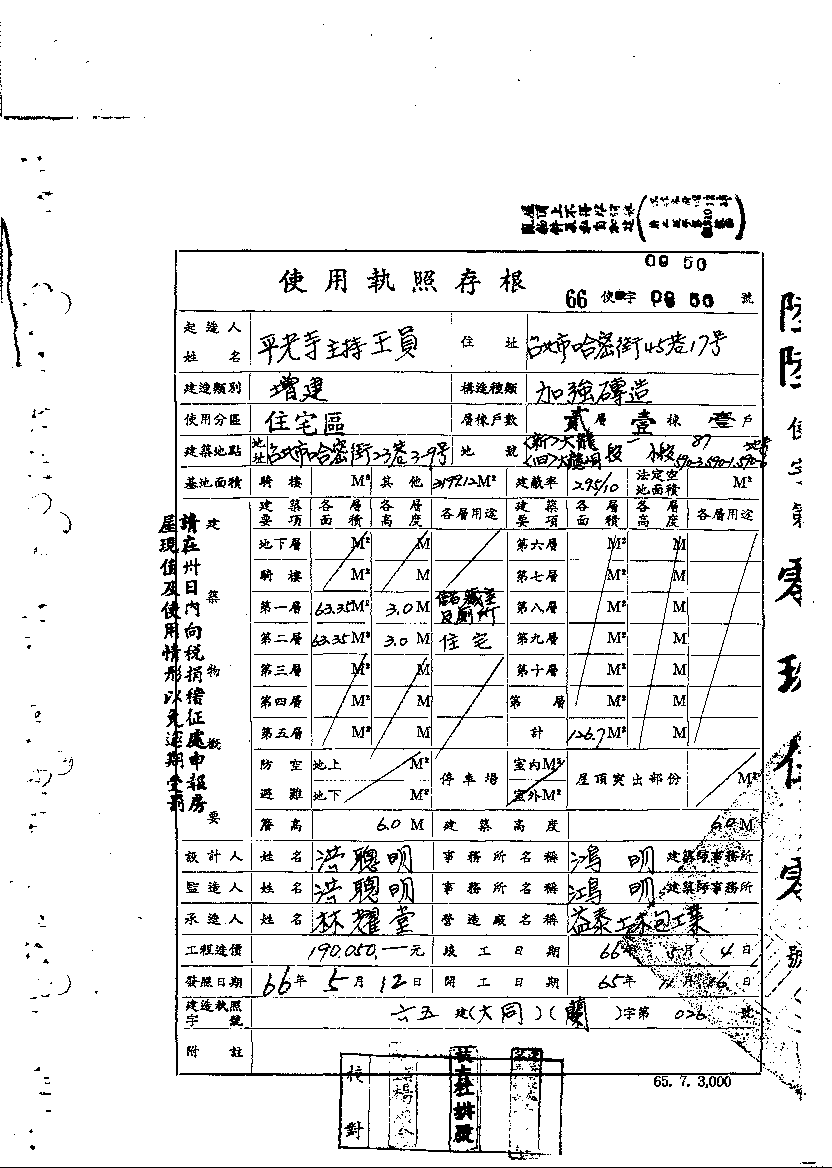 09 50
使用執照存根
66 使字 09 50 號
起造人姓名 平光寺主持王員 住址 台北市哈密街45巷17號
建造類別 增建 構造種類 加強磚造
使用分區 住宅區 層棟戶數 貳層壹棟壹戶
建築地點 地址 台北市哈密街23巷3-9號 地號 (新)大龍 (旧)大龍峒 段 一 小段 87
基地面積 騎樓 M² 其他 M² 建蔽率 2.95/10 法定空地面積 M²
建築物概要
建築要項 各層面積 各層高度 各層用途 建築要項 各層面積 各層高度 各層用途
地下層 M² M 第六層 M² M
騎樓 M² M 第七層 M² M
第一層 63.35M² 3.0M 儲藏室及廁所 第八層 M² M
第二層 63.35M² 3.0M 住宅 第九層 M² M
第三層 M² M 第十層 M² M
第四層 M² M 第 層 M² M
第五層 M² M 計 126.7M² M
防空避難 地上 M² 地下 停車場 室內M² 室外M² 屋頂突出部份 M²
簷高 6.0M 建築高度 6.0M
設計人 姓名 洪聰明 事務所名稱 鴻明 建築師事務所
監造人 姓名 洪聰明 事務所名稱 鴻明 建築師事務所
承造人 姓名 林耀堂 營造廠名稱 益泰土木包工業
工程造價 190,050.—元 竣工日期 66年5月4日
發照日期 66年5月12日 開工日期 65年 月16日
建造執照字號 六五建(大同)(蘭)字第026號
附註
請在卅日內向稅捐稽征處申報房屋現值及使用情形以免逾期受罰
65. 7. 3,000
校對